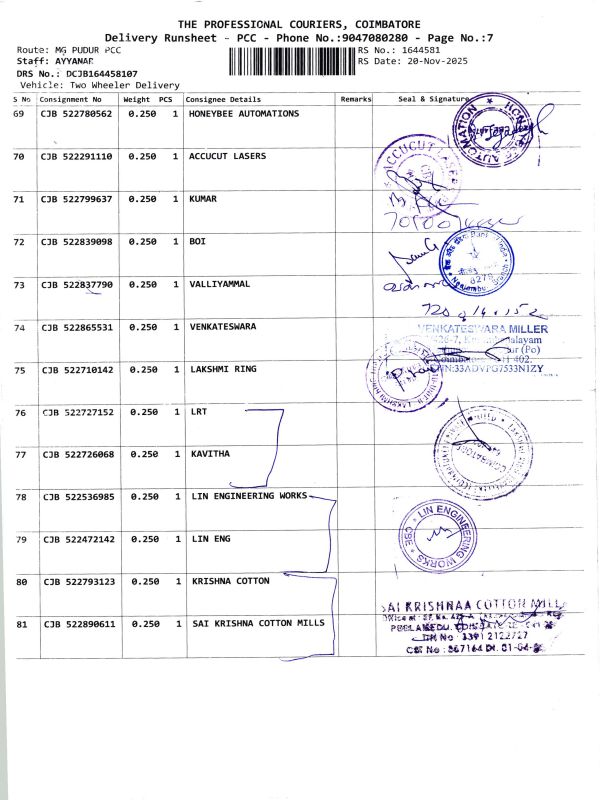 THE PROFESSIONAL COURIERS, COIMBATORE
Delivery Runsheet - PCC - Phone No.:9047080280 - Page No.:7
Route: MG PUDUR PCC
RS No.: 1644581
Staff: AYYANAR
RS Date: 20-Nov-2025
DRS No.: DCJB164458107
Vehicle: Two Wheeler Delivery
S No Consignment No Weight PCS Consignee Details Remarks Seal & Signature
69 CJB 522780562 0.250 1 HONEYBEE AUTOMATIONS
70 CJB 522291110 0.250 1 ACCUCUT LASERS
71 CJB 522799637 0.250 1 KUMAR
72 CJB 522839098 0.250 1 BOI
8276
73 CJB 522837790 0.250 1 VALLIYAMMAL
74 CJB 522865531 0.250 1 VENKATESWARA
VENKATESWARA MILLER
75 CJB 522710142 0.250 1 LAKSHMI RING
76 CJB 522727152 0.250 1 LRT
77 CJB 522726068 0.250 1 KAVITHA
78 CJB 522536985 0.250 1 LIN ENGINEERING WORKS
LIN ENGINEERING WORKS * CBE *
79 CJB 522472142 0.250 1 LIN ENG
80 CJB 522793123 0.250 1 KRISHNA COTTON
SAI KRISHNAA COTTON MILLS
81 CJB 522890611 0.250 1 SAI KRISHNA COTTON MILLS